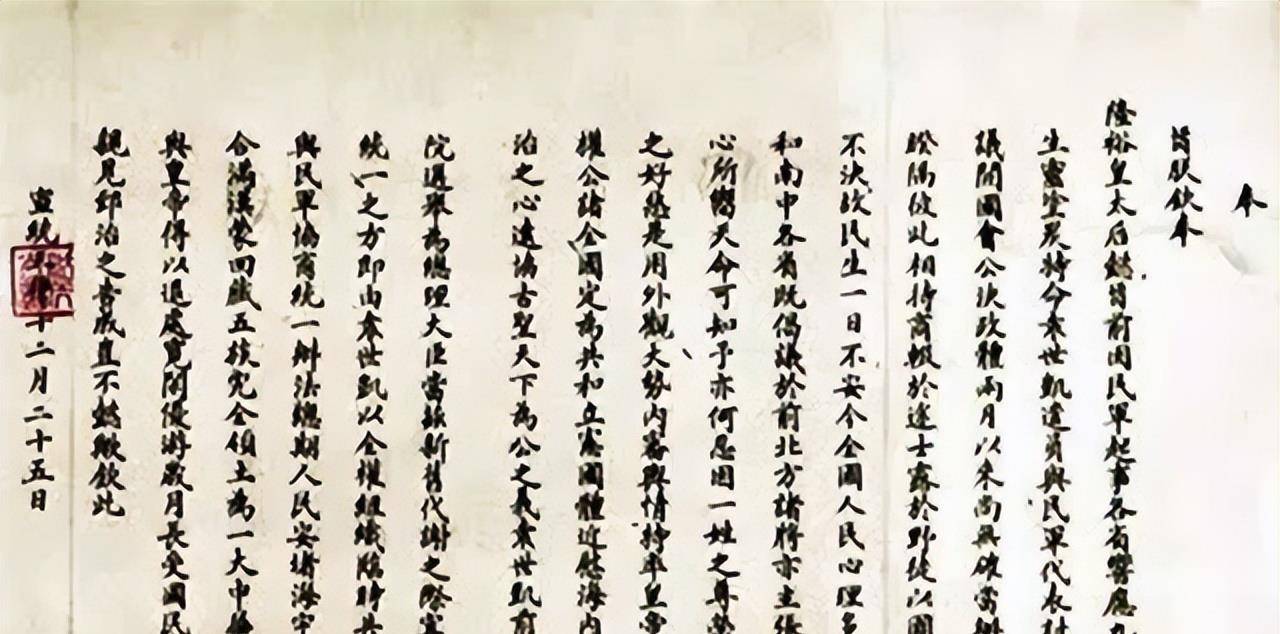 奉
旨朕欽奉
隆裕皇太后懿旨前因民軍起事各省響應九
生靈塗炭特命袁世凱遣員與民軍代表討
議開國會公決政體兩月以來尚無確當辦
睽隔彼此相持商輟於途士露於野徒以國
不決故民生一日不安今全國人民心理多
和南中各省既倡議於前北方諸將亦主張
心所嚮天命可知予亦何忍因一姓之尊榮
之好惡是用外觀大勢內審輿情特率皇帝
權公諸全國定為共和立憲國體近慰海內
治之心遠協古聖天下為公之義袁世凱前
院選舉為總理大臣當茲新舊代謝之際宜
統一之方即由袁世凱以全權組織臨時共
與民軍協商統一辦法總期人民安堵海宇
合滿漢蒙回藏五族完全領土為一大中華
與皇帝得以退處寬閒優游歲月長受國民
親見郅治之告成豈不懿歟欽此
宣統 十二月二十五日